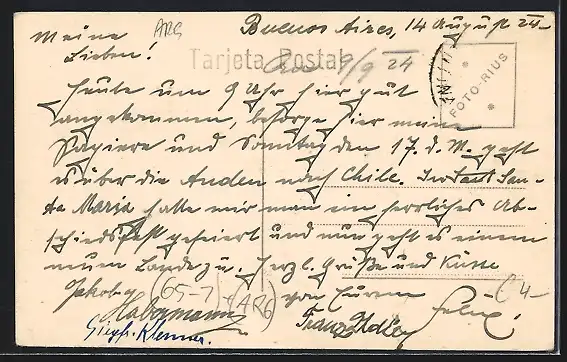 Buenos Aires, 14 August 24
ARG
Meine
Lieben!
Tarjeta Postal
9/9 24
FOTO-RIUS
Heute um 9 Uhr hier gut
angekommen, besorge hier meine
Papiere und Sonntag den 17. d. M. geht
es über die Anden nach Chile. In San-
ta Maria hatte mir man ein herrliches Ab-
schiedsfest gefeiert und nun geht es einem
neuen Lande zu. Herzl. Grüße und Küsse
von Eurem Felix!
Jakob
Habermann
(65-7) (AR6)
Siegfr. Klemer.
Franz
4-